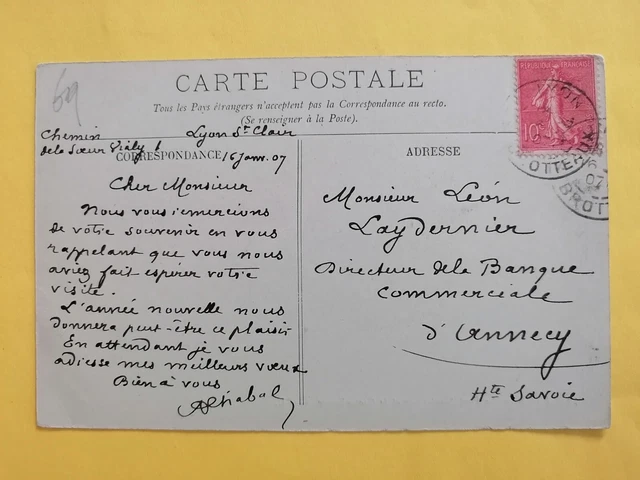 69
CARTE POSTALE
Tous les Pays étrangers n'acceptent pas la Correspondance au recto.
(Se renseigner à la Poste).
Chemin Lyon St Clair
de la Sœur Vially 6
CORRESPONDANCE 16 Janv. 07
Cher Monsieur
Nous vous remercions
de votre souvenir en vous
rappelant que vous nous
aviez fait espérer votre
visite.
L'année nouvelle nous
donnera peut-être ce plaisir
En attendant je vous
adresse mes meilleurs vœux
Bien à vous
AChabal
ADRESSE
Monsieur Léon
Laydernier
Directeur de la Banque
Commerciale
d'Annecy
Hte Savoie
REPUBLIQUE FRANÇAISE
10c
LYON
BROTTEAUX
07
BROTT